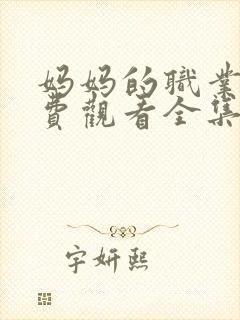 妈妈的職業
費觀看全集
宇妍熙